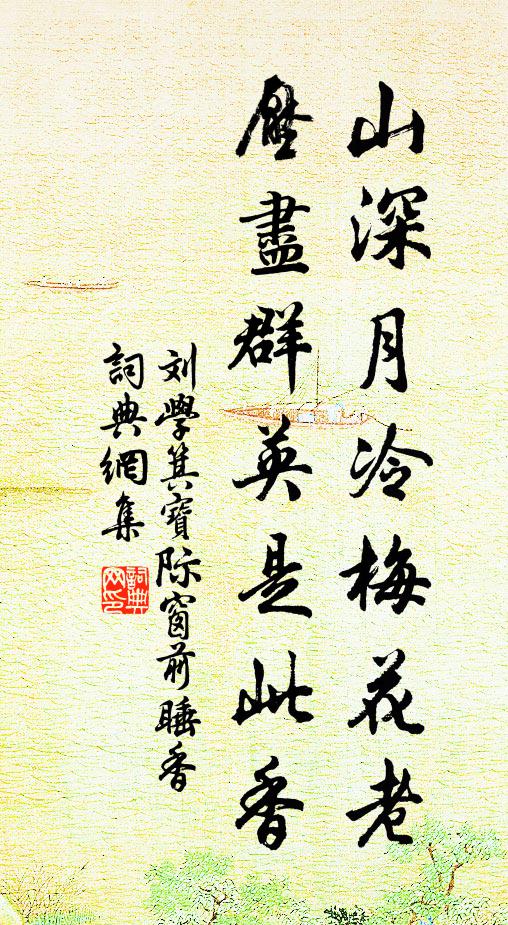 山深月冷梅花老
壓盡群英是此香
刘學箕寶际窗前睡香
詞典網集
詞典
网印